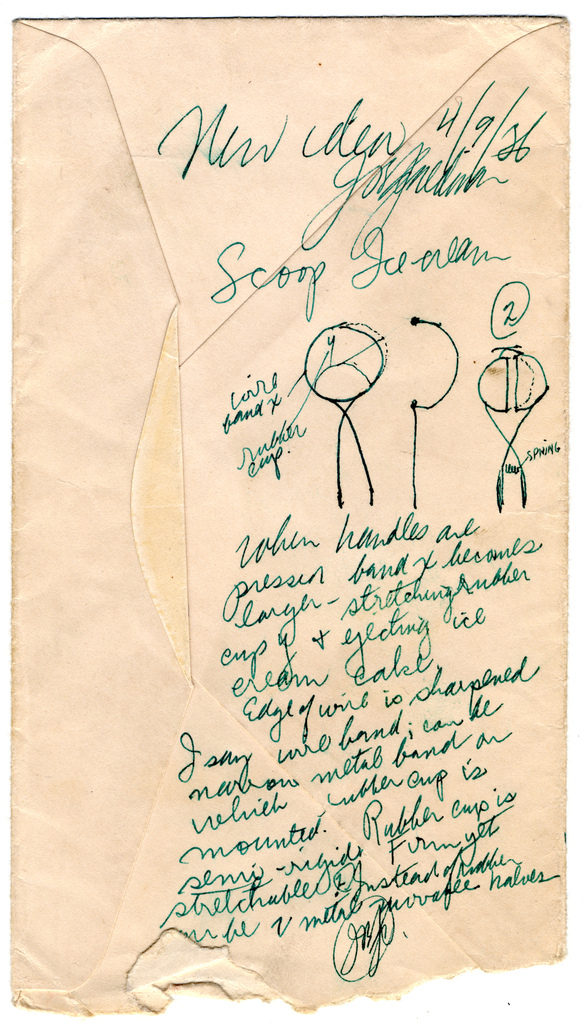 New idea 4/9/36
Jos Friedman
Scoop Ice-cream
2
y
wire
band x
rubber
cup.
SPRING
When handles are
pressed band x becomes
larger - stretching rubber
cup y & ejecting ice
cream cake.
Edge of wire is sharpened
I say wire band; can be
narrow metal band on
which rubber cup is
mounted. Rubber cup is
semi-rigid. Firm yet
stretchable 2 Instead of rubber
may be 2 metal halves